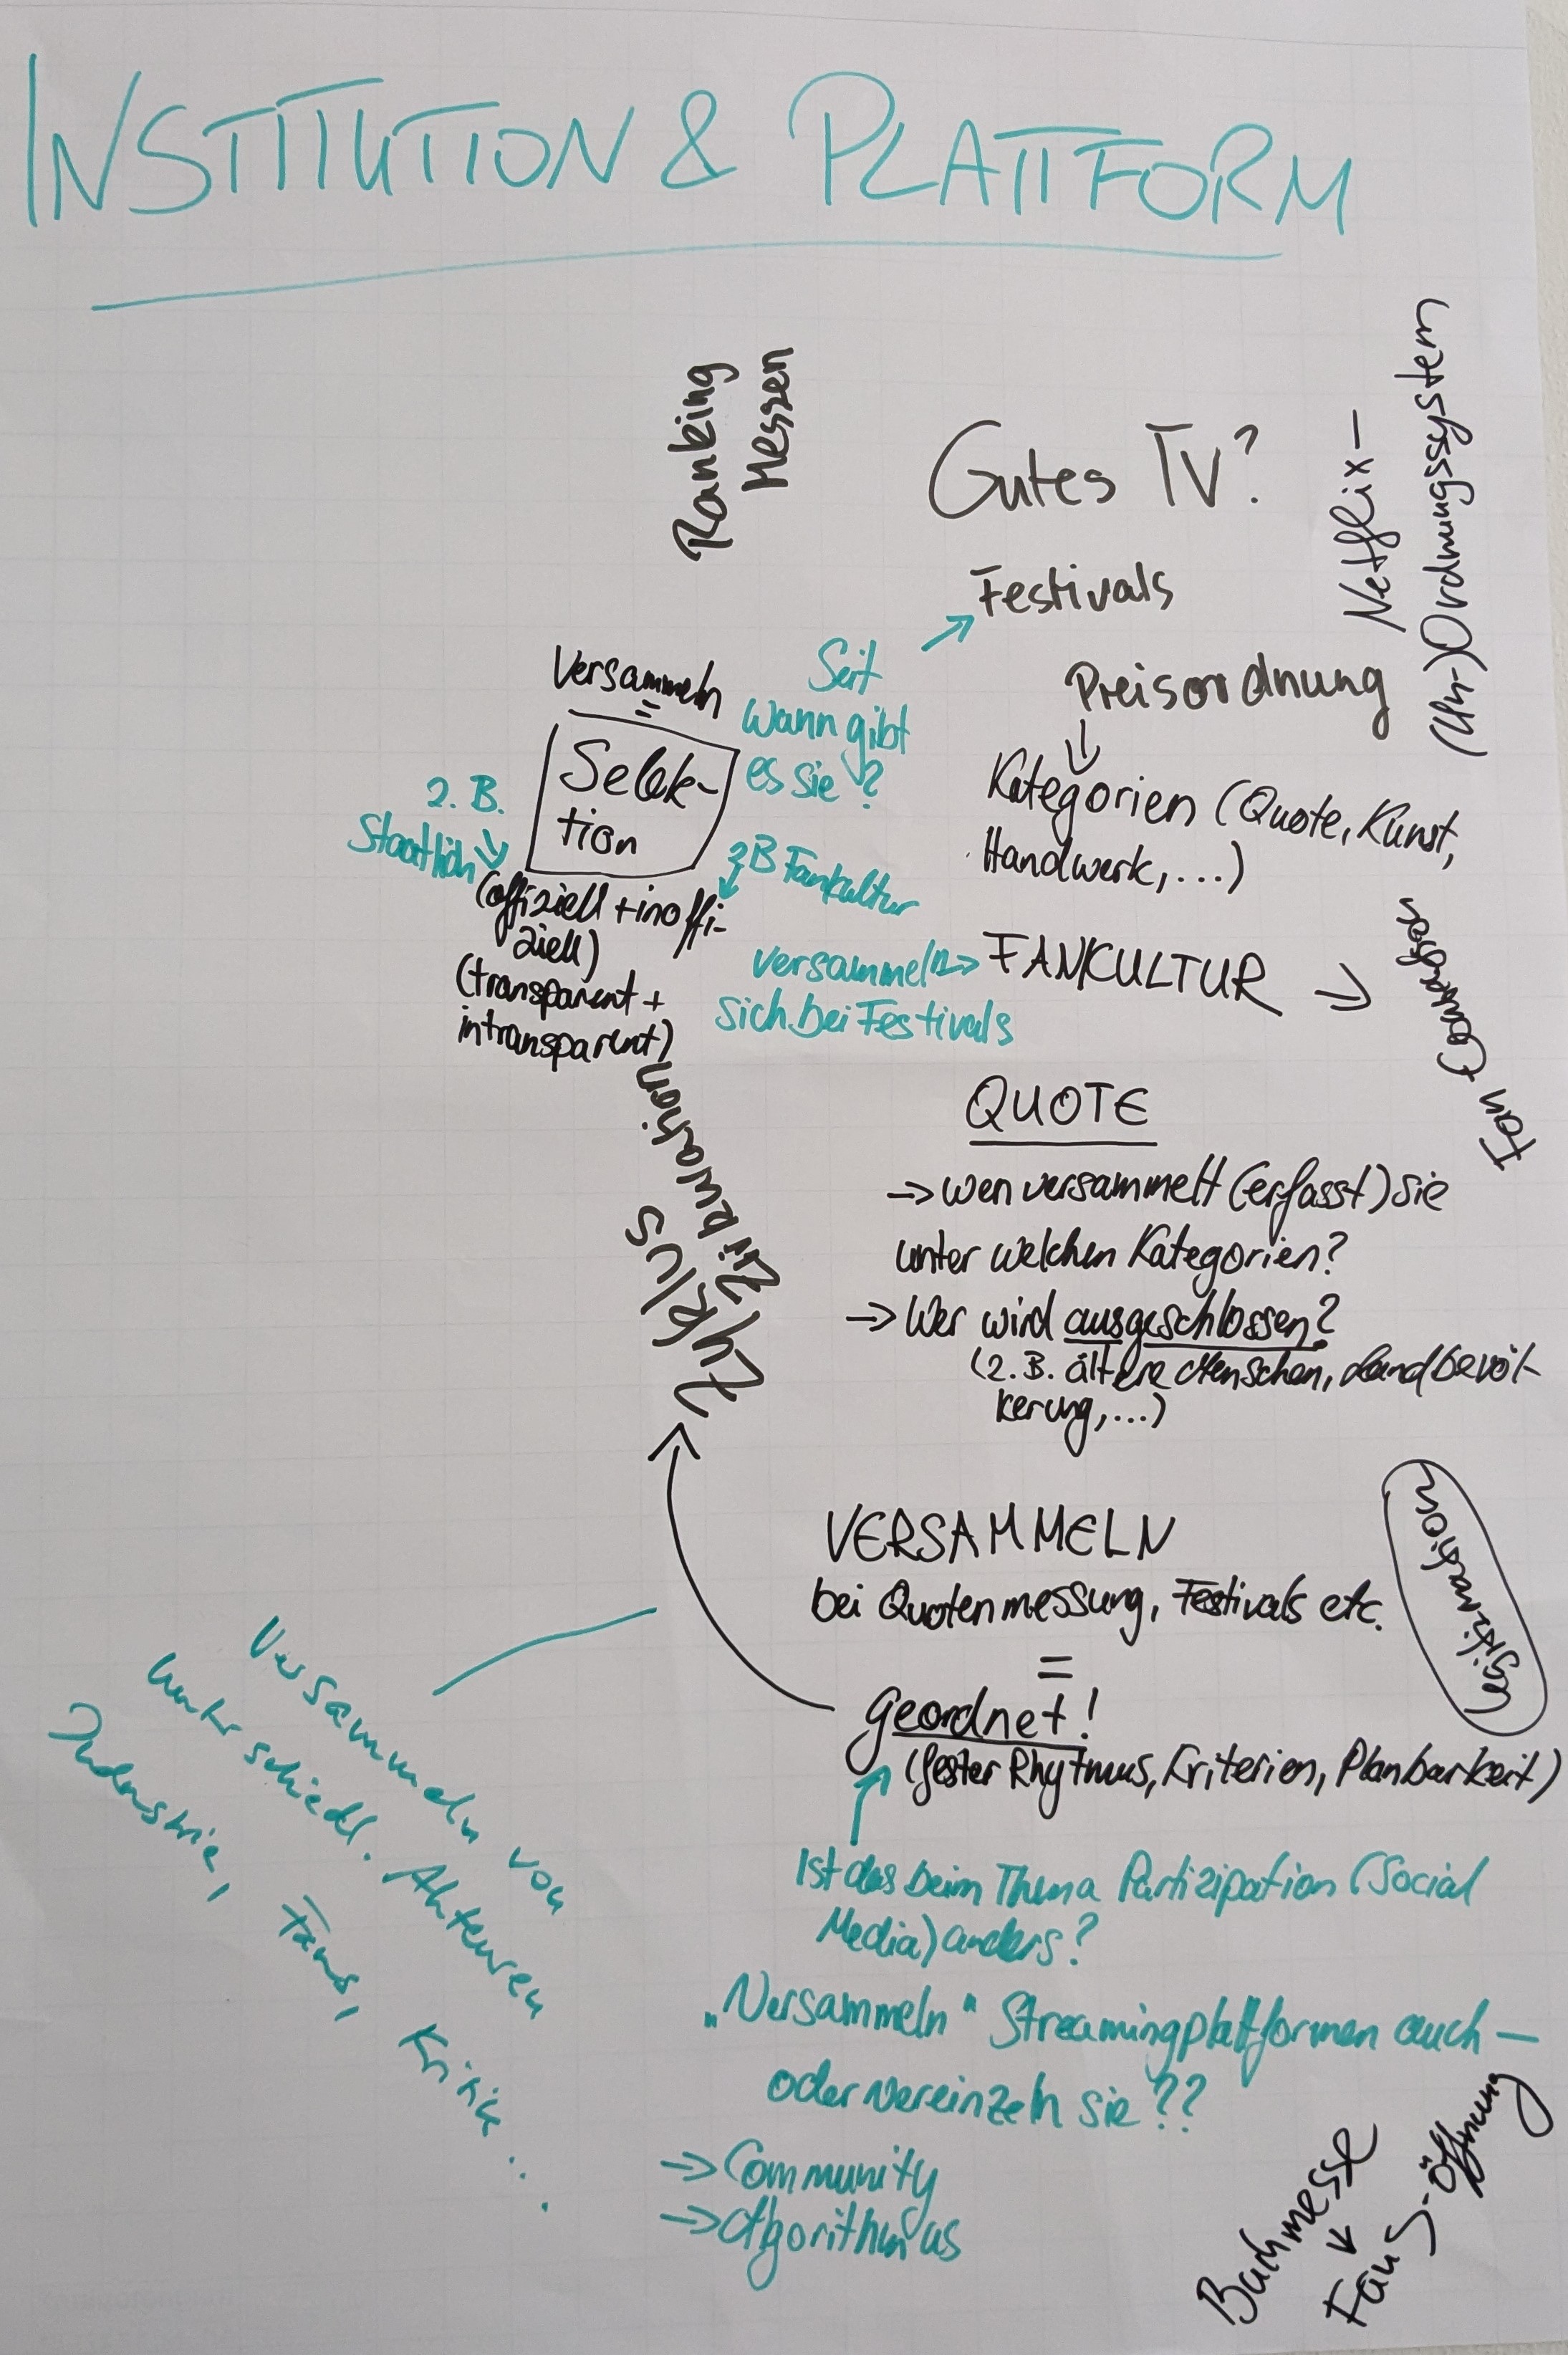 INSTITUTION & PLATTFORM
Ranking
Messen
Gutes TV?
Netflix-
(Un-)Ordnungssystem
Festivals
Seit
wann gibt
es sie?
Preisordnung
↓
Kategorien (Quote, Kunst,
Handwerk, ...)
Versammeln
=
Selek-
tion
z. B.
Staatlich
zB Fankultur
(offiziell + inoffi-
ziell)
(transparent +
intransparent)
versammeln → FANKULTUR →
sich bei Festivals
Fan
Zirkulation
Zyklus
QUOTE
→ wen versammelt (erfasst) sie
unter welchen Kategorien?
→ Wer wird ausgeschlossen?
(z. B. ältere Menschen, Landbevöl-
kerung, ...)
VERSAMMELN
bei Quotenmessung, Festivals etc.
=
geordnet!
(fester Rhytmus, Kriterien, Planbarkeit)
Legitimation
Ist das beim Thema Partizipation (Social
Media) anders?
„Versammeln" Streamingplattformen auch –
oder vereinzeln sie??
→ Community
→ Algorithmus
Versammeln von
unterschiedl. Akteuren
Industrie, Fans, Kritik...
Buchmesse
↓
Fans-öffnung